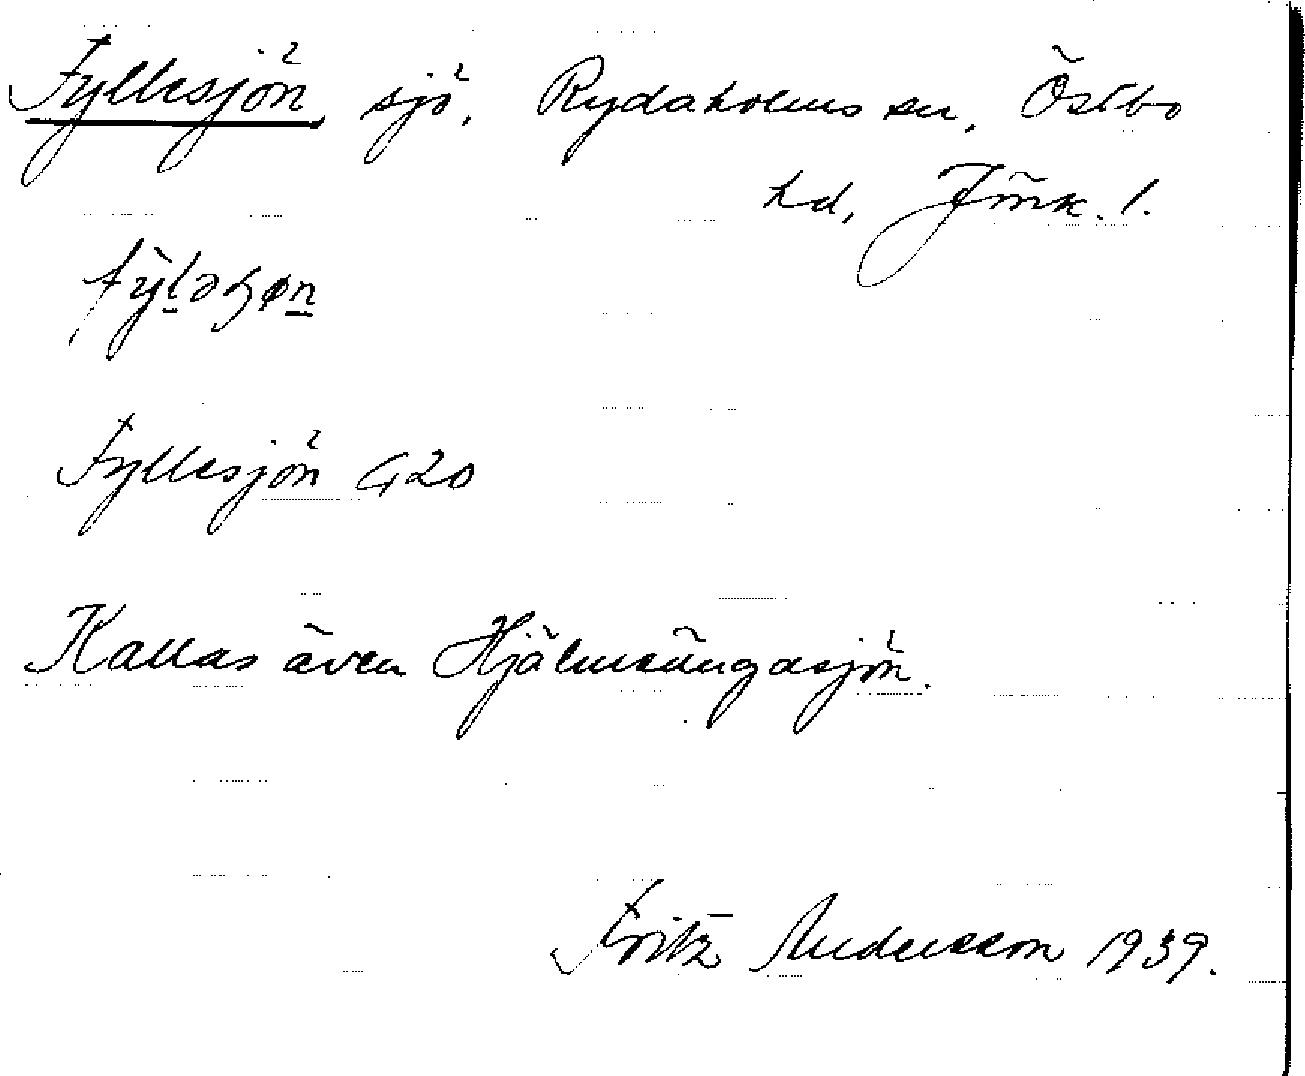 Fyllesjön sjö, Rydaholms sn, Östbo
hd, Jönk. l.
Fyllesjön G20
Kallas även Hjälmsängasjön.
Fritz Andersson 1939.